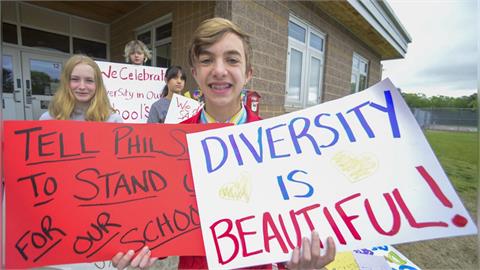 We Celebrate
Diversity in Our
Schools
We
TELL PHIL S
TO STAND U
FOR OUR
SCHOO
DIVERSITY
IS
BEAUTIFUL!